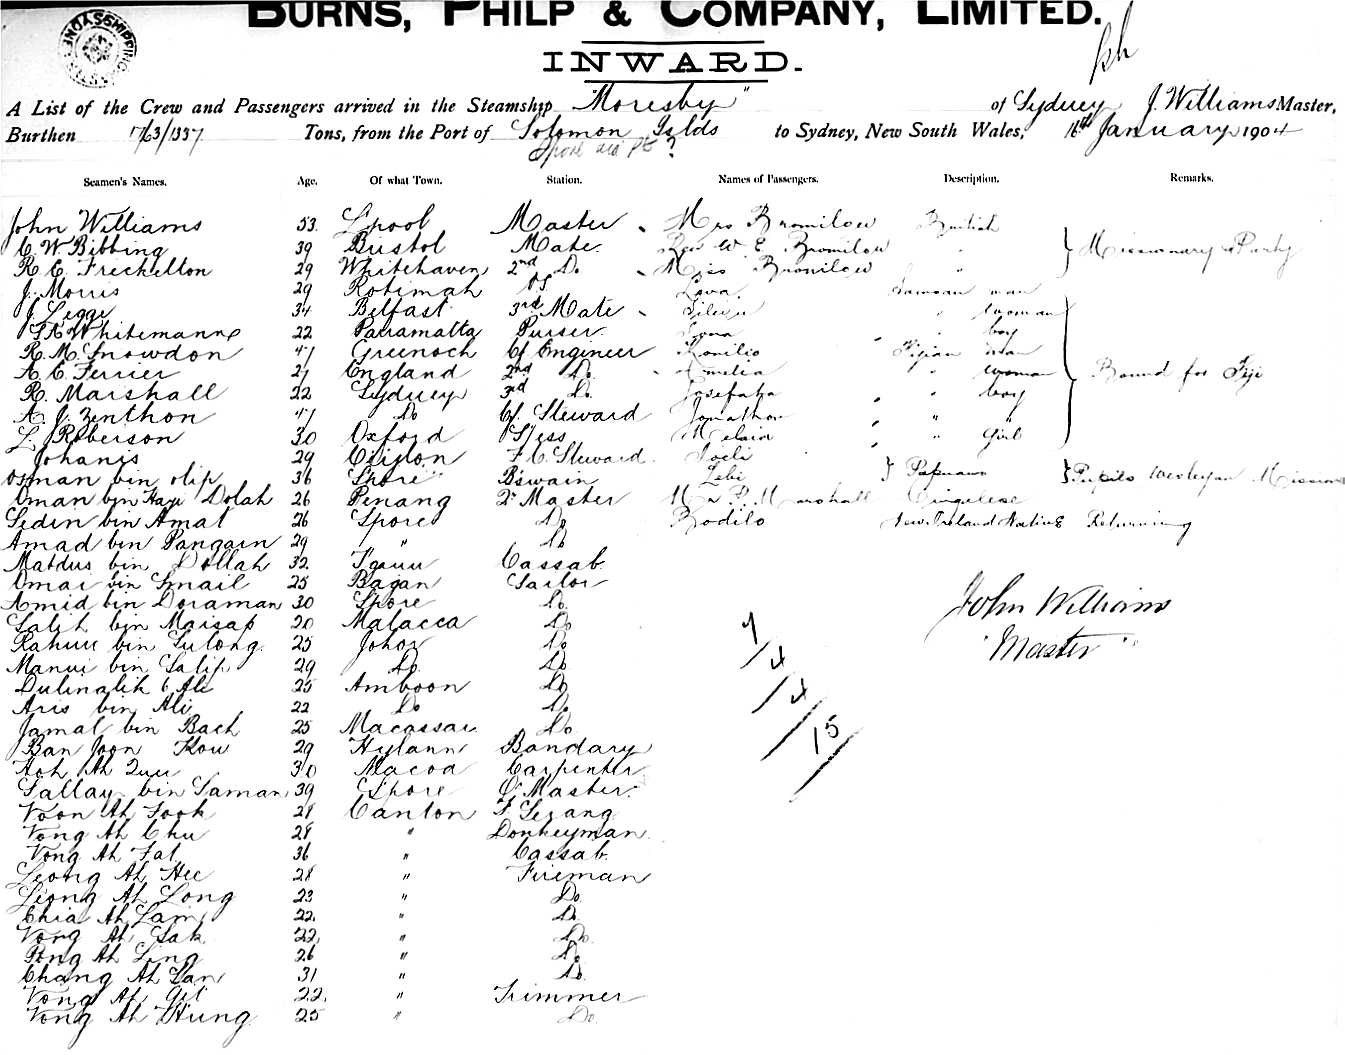 BURNS, PHILP & COMPANY, LIMITED.
INWARD.
A List of the Crew and Passengers arrived in the Steamship "Moresby" of Sydney J. Williams Master,
Burthen 1763/1337 Tons, from the Port of Solomon Islds to Sydney, New South Wales, 16th January 1904
Spore via Pt ?
Seamen's Names. Age. Of what Town. Station. Names of Passengers. Description. Remarks.
John Williams 53 L'pool Master Mrs Bromilow British
C. W. Bibbing 39 Bristol Mate Rev W E Bromilow " Missionary Party
R. C. Freckelton 29 Whitehaven 2nd Do Miss Bromilow "
J. Morris 29 Rotimah OS Samoan man
J. Legge 34 Belfast 3rd Mate " woman
Whitemann 22 Parramatta Purser " boy
R. M. Snowdon 47 Greenoch Cf Engineer Fijian man
A. C. Ferrier 27 England 2nd Do. Amelia " woman Bound for Fiji
R. Marshall 22 Sydney 3rd Do. Josefata " boy
A. J. Zenthon 47 Do Cf. Steward Jonathan " "
L. Roberson 30 Oxford S/ess " Girl
Johanis 29 F. C. Steward
Osman bin Olip 36 S'pore B'swain Papuans Pupils Wesleyan Mission
Oman byn Haji Dolah 26 Penang 2r Master Mr P. Marshall Cingalese
Sedin bin Amat 26 Spore Do Rodilo New Ireland Native Returning
Amad bin Pangain 29 " Do
Matdus bin Dollah 32 Cassab
Omar bin Smail 25 Bagan Sailor
Amid bin Doraman 30 Spore Do.
Salih bin Maisap 20 Malacca Do
Rahim bin Sulong 25 Johor Do
Manui bin Salip 29 Do Do
Dulinalih b Ali 25 Amboon Do
Aris bin Ali 22 Do Do.
Jamal bin Bach 25 Macassar Do
Ban Joon Kow 29 Hylann Bandary
Ah 30 Macoa Carpenter
Sallay bin Saman 39 Spore Q Master
Voon Ah Fook 28 Canton F. Serang
Vong Ah Chu 28 " Donkeyman
Vong Ah Fat 36 " Cassab
Leong Ah Hee 28 " Fireman
Leong Ah Long 23 " Do.
Chia Ah Lam 22 " Do.
Vong Ah Sak 22 " Do.
Ah Ling 26 " Do.
Chang Ah San 31 " Do.
Vong Ah Git 22 " Trimmer
Vong Ah Hung 25 " Do.
John Williams
"Master"
7/4/4/15